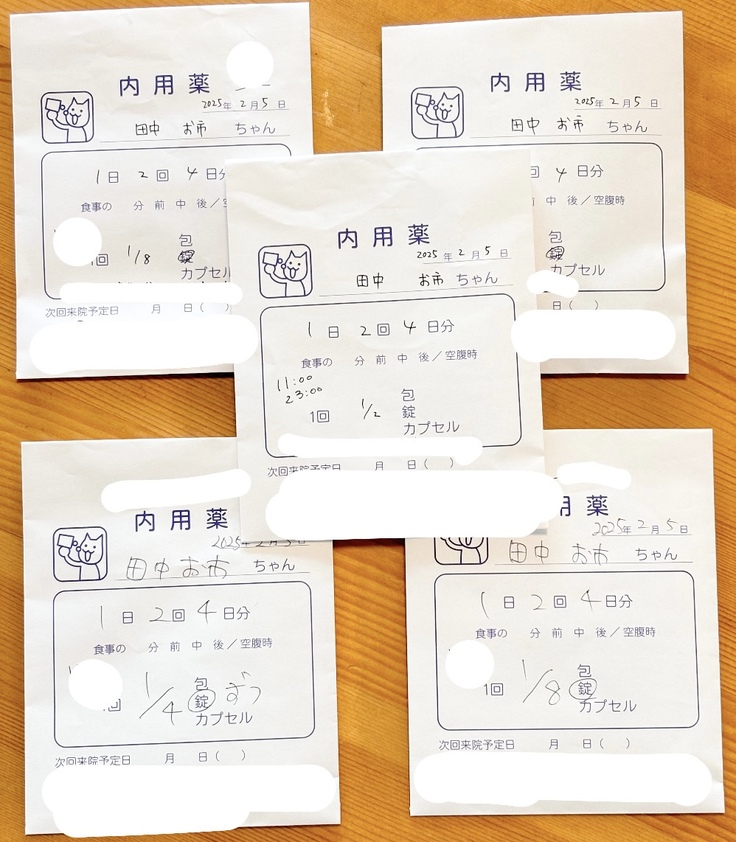 内用薬
2025年 2月 5日
田中 お市 ちゃん
1日 2回 4日分
食事の 分 前 中 後／空
包
1回 1/8 錠
カプセル
次回来院予定日 月 日( )
内用薬
2025年 2月 5日
田中 お市 ちゃん
回 4日分
分 前 中 後／空腹時
包
錠
カプセル
日( )
内用薬
2025年 2月 5日
田中 お市 ちゃん
1日 2回 4日分
食事の 分 前 中 後／空腹時
11:00
23:00
包
1回 1/2 錠
カプセル
次回来院予定日 月 日( )
内用薬
2025年2月5日
田中 お市 ちゃん
1日 2回 4日分
食事の 分 前 中 後／空腹時
包
回 1/4 錠 ずつ
カプセル
次回来院予定日 月 日( )
用薬
2025年 2月 5日
田中 お市 ちゃん
1日 2回 4日分
食事の 分 前 中 後／空腹時
包
1回 1/8 錠
カプセル
次回来院予定日 月 日( )